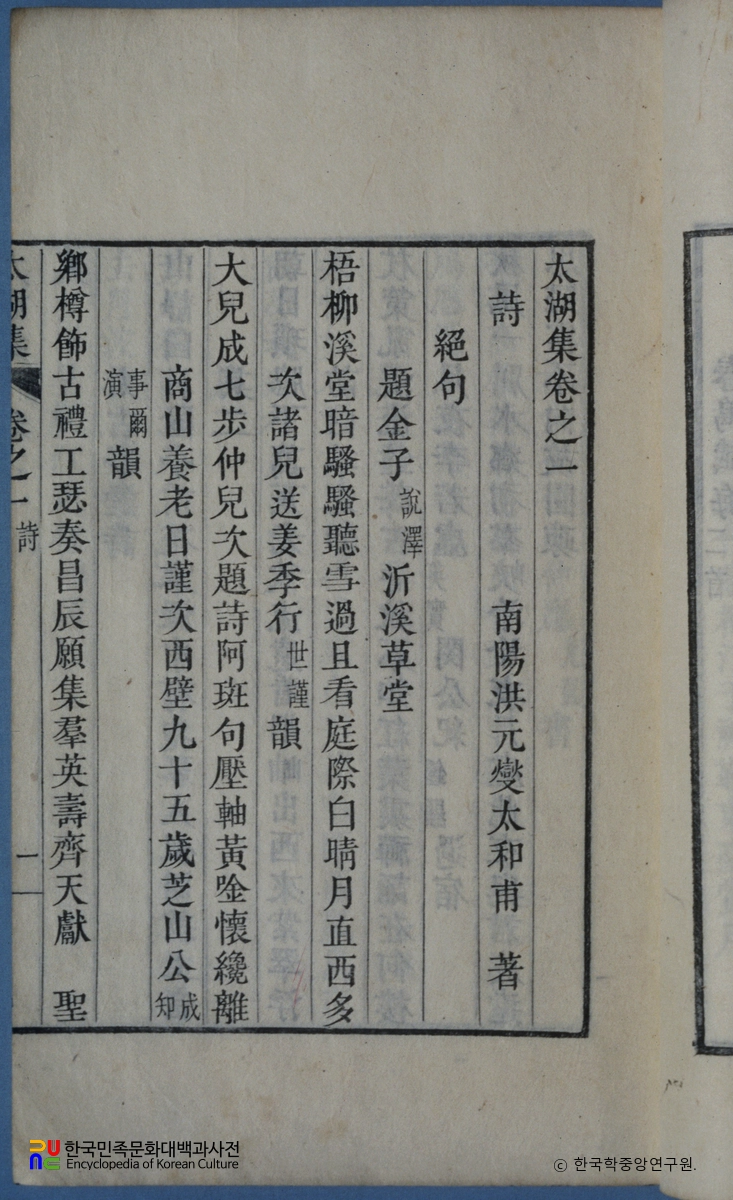 太湖集卷之一
詩 南陽洪元燮太和甫 著
絕句
題金子說澤沂溪草堂
梧柳溪堂暗騷騷聽雪過且看庭際白晴月直西多
次諸兒送姜季行世謹韻
大兒成七步仲兒次題詩阿斑句壓軸黃唫懷纔離
商山養老日謹次西壁九十五歲芝山公成知
事爾演韻
鄉樽飾古禮工瑟奏昌辰願集羣英壽齊天獻 聖
太湖集 卷之一 詩 一
한국민족문화대백과사전
Encyclopedia of Korean Culture
ⓒ 한국학중앙연구원.